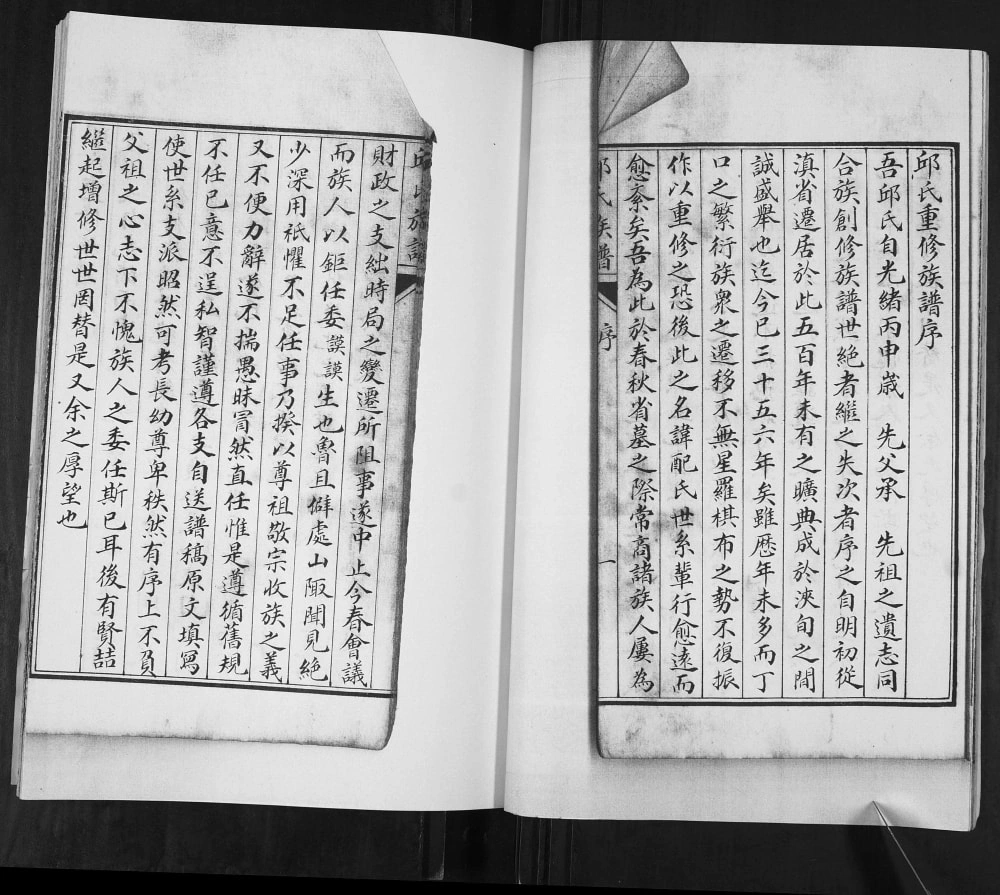 邱氏重修族譜序
吾邱氏自光緒丙申歲　先父承　先祖之遺志同
合族創修族譜世絕者繼之失次者序之自明初從
滇省遷居於此五百年未有之曠典成於浹旬之間
誠盛舉也迄今已三十五六年矣雖歷年未多而丁
口之繁衍族衆之遷移不無星羅棋布之勢不復振
作以重修之恐後此之名諱配氏世系輩行愈遠而
愈紊矣吾為此於春秋省墓之際常商諸族人屢為
邱氏族譜　序　一
邱氏族譜
財政之支絀時局之變遷所阻事遂中止今春會議
而族人以鉅任委謨謨生也魯且僻處山陬聞見絕
少深用祇懼不足任事乃揆以尊祖敬宗收族之義
又不便力辭遂不揣愚昧冒然直任惟是遵循舊規
不任已意不逞私智謹遵各支自送譜稿原文填寫
使世系支派昭然可考長幼尊卑秩然有序上不負
父祖之心志下不愧族人之委任斯已耳後有賢喆
繼起增修世世罔替是又余之厚望也